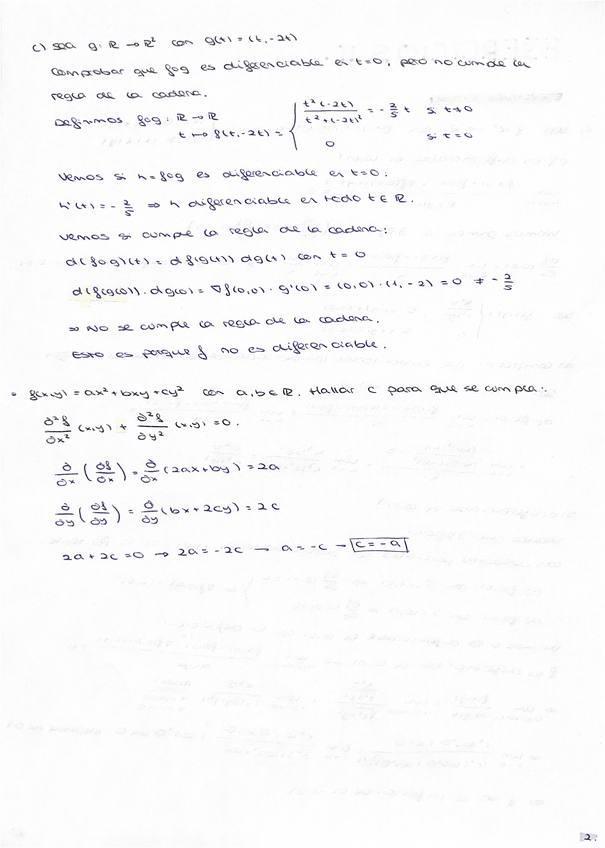 c) sea g: ℝ → ℝ² con g(t) = (t, -2t)
Comprobar que fog es diferenciable en t=0, pero no cumple la
regla de la cadena.
Definimos fog: ℝ → ℝ
t ↦ f(t,-2t) = { t²(-2t) / (t²+(-2t)²) = -2/5 t si t≠0
0 si t=0
Vemos si h=fog es diferenciable en t=0:
h'(t) = -2/5 ⇒ h diferenciable en todo t ∈ ℝ.
Vemos si cumple la regla de la cadena:
d(fog)(t) = df(g(t)) dg(t) con t=0
d(f(g(0))·dg(0) = ∇f(0,0)·g'(0) = (0,0)·(1,-2) = 0 ≠ -2/5
⇒ No se cumple la regla de la cadena.
Esto es porque f no es diferenciable.
• f(x,y) = ax²+bxy+cy² con a,b ∈ ℝ. Hallar c para que se cumpla:
∂²f/∂x² (x,y) + ∂²f/∂y² (x,y) = 0.
∂/∂x (∂f/∂x) = ∂/∂x (2ax+by) = 2a
∂/∂y (∂f/∂y) = ∂/∂y (bx+2cy) = 2c
2a+2c=0 → 2a=-2c → a=-c → c=-a
2.